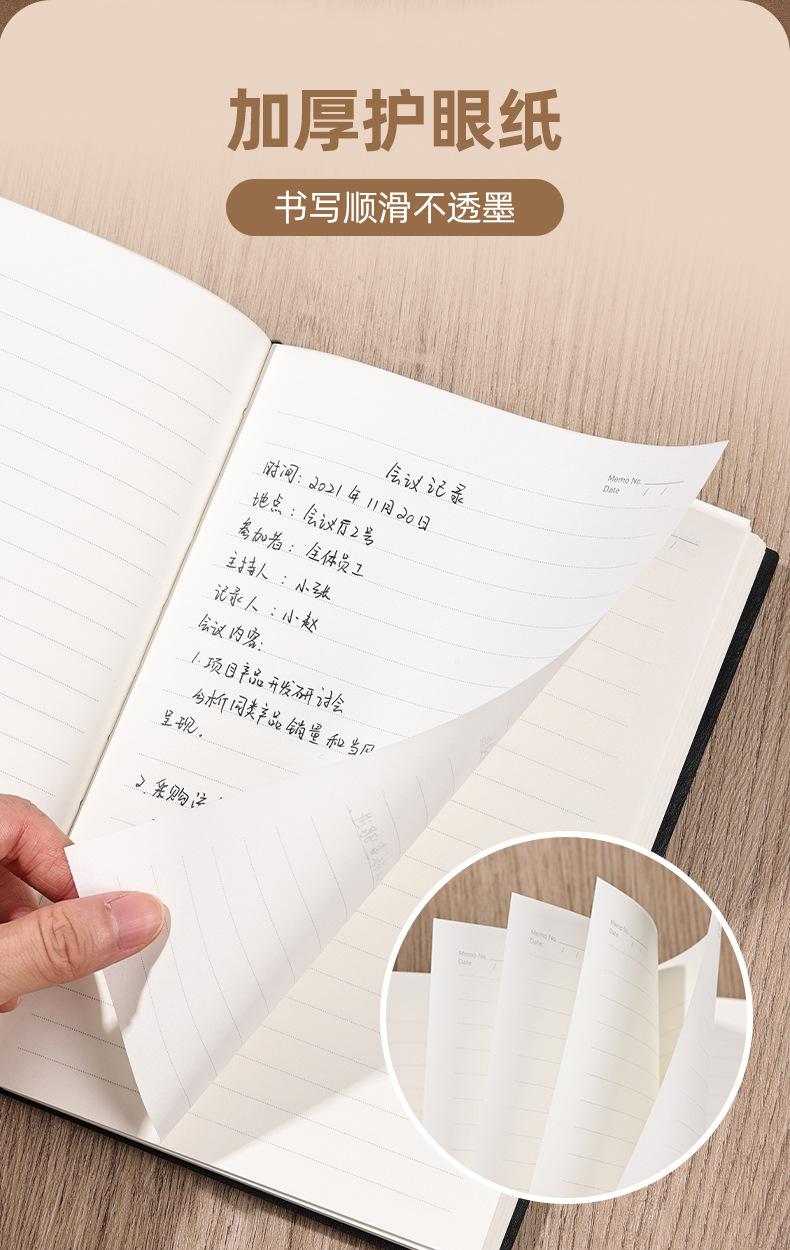 加厚护眼纸
书写顺滑不透墨
会议记录
Memo No.
Date / /
时间：2021年11月20日
地点：会议厅2号
参加者：全体员工
主持人：小张
记录人：小赵
会议内容：
1.项目产品开发研讨会
分析同类产品销量和当
呈现。
2.采购
Memo No.
Date / /
Memo No.
Date / /
Memo No.
Date / /